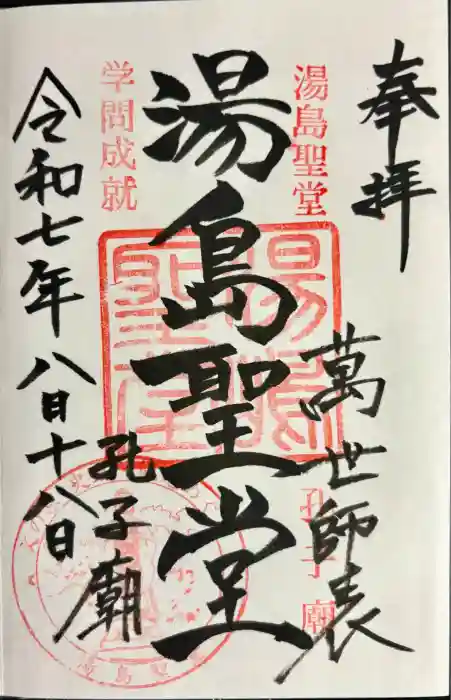 奉拝
湯島聖堂
萬世師表
孔子廟
湯島聖堂
湯島聖堂
学問成就
孔子廟
令和七年八月十八日
湯島聖堂